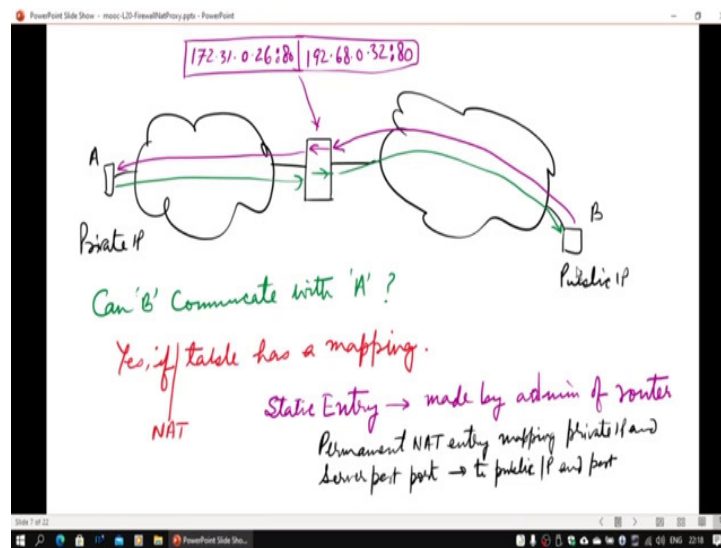 PowerPoint Slide Show - mooc-L20-FirewallNatProxy.pptx - PowerPoint
172.31.0.26:80 192.68.0.32:80
A
B
Private IP
Public IP
Can 'B' Commucate with 'A' ?
Yes, if table has a mapping.
NAT
Static Entry → made by admin of router
Permanent NAT entry mapping private IP and
Server port port → to public IP and port
Slide 7 of 22
PowerPoint Slide Sho...
ENG 22:18